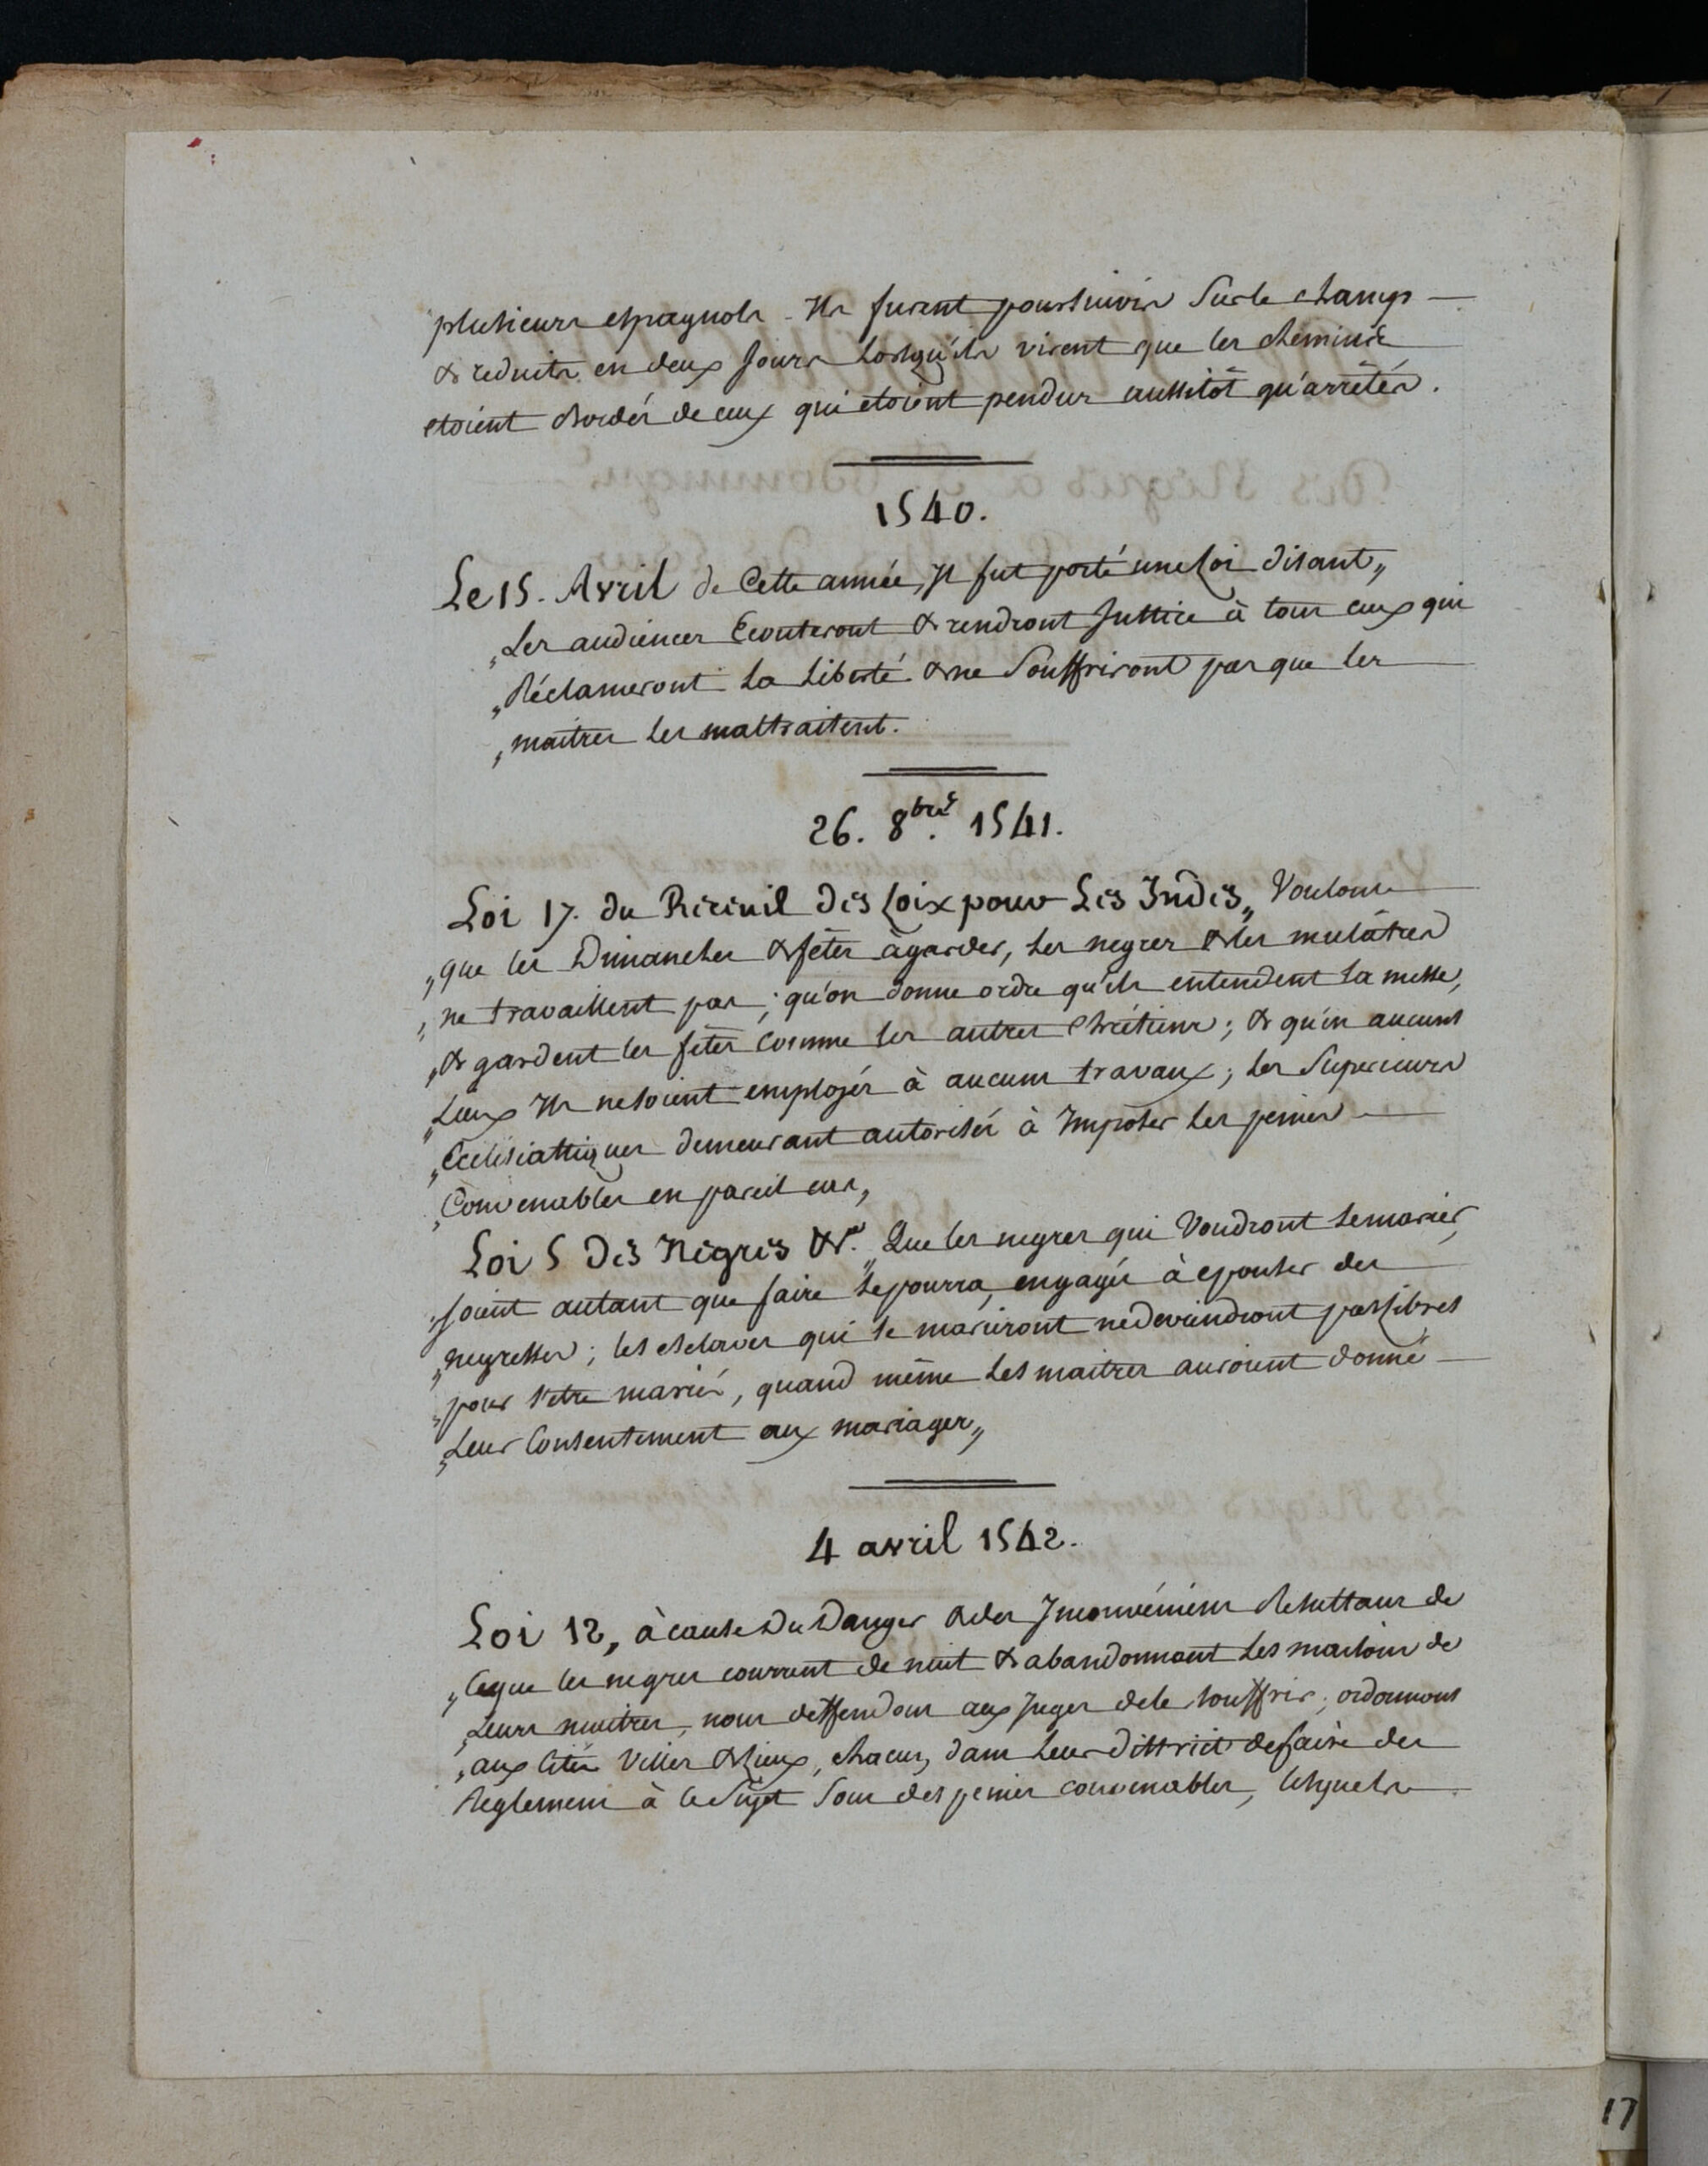 plusieurs espagnols. Ils furent poursuivis Sur le champ
& reduits en deux Jours Lorsqu'ils virent que les chemins
etoient Bordés de ceux qui étoient pendus aussitôt qu'arrêtés.
1540.
Le 15. Avril de Cette année, Il fut porté une Loi disant,,
„Les audiences Ecouteront & rendront Justice à tous ceux qui
„Réclameront La Liberté & ne Souffriront pas que les
„maitres les maltraitent.
26. 8bre. 1541.
Loi 17. du Recueil des Loix pour Les Indes,, Voulons
„que les Dimanches & fêtes à garder, les negres & les mulâtres
„ne travaillent pas; qu'on donne ordre qu'ils entendent La messe,
„& gardent les fêtes Comme les autres Chrétiens; & qu'en aucuns
„Lieux Ils ne soient employés à aucuns travaux; les Superieurs
„Eclésiastiques demeurant autorisés à Imposer les peines
„Convenables en pareil cas,
Loi 5 des Negres &a. „Que les negres qui Voudront se marier,
„soient autant que faire se pourra, engagés à epouser des
„negresses; les esclaves qui se marieront ne deviendront pas libres
„pour s'etre mariés, quand même Les maitres auroient donné
„Leur Consentement aux mariages,,
4 avril 1542.
Loi 12, à cause Du Danger & des Inconvéniens Resultans de
„Ce que les negres courrent de nuit & abandonnent Les maisons de
„Leurs maitres, nous deffendons aux Juges de le souffrir; ordonnons
„aux Cités Villes & Lieux, chacun, dans Leur District de faire des
Reglemens à Ce Sujet Sous des peines convenables, lesquels
17